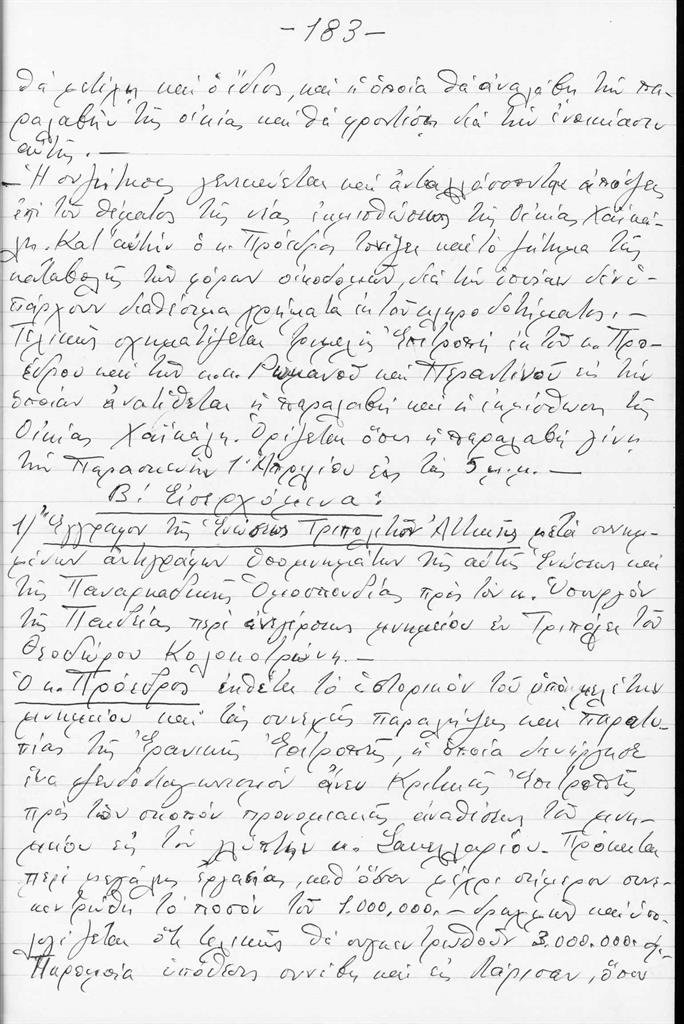 -183-
θὰ μετέχη καὶ ὁ ἴδιος, καὶ ἡ ὁποία θὰ ἀναλάβη τὴν πα-
ραλαβὴν τῆς οἰκίας καὶ θὰ φροντίση διὰ τὴν ἐνοικίασιν
αὐτῆς.—
- Ἡ συζήτησις γενικεύεται καὶ ἀνταλλάσσονται ἀπόψεις
ἐπὶ τοῦ θέματος τῆς νέας ἐκμισθώσεως τῆς Οἰκίας Χαϊκά-
λη. Κατ' αὐτὴν ὁ κ. Πρόεδρος τονίζει καὶ τὸ ζήτημα τῆς
καταβολῆς τῶν φόρων οἰκοδομῶν, διὰ τὴν ὁποίαν δὲν ὑ-
πάρχουν διαθέσιμα χρήματα ἐκ τοῦ κληροδοτήματος.—
Τελικῶς σχηματίζεται τριμελὴς Ἐπιτροπὴ ἐκ τοῦ κ. Προ-
έδρου καὶ τῶν κ.κ. Ρωμανοῦ καὶ Περαντινοῦ εἰς τὴν
ὁποίαν ἀνατίθεται ἡ παραλαβὴ καὶ ἡ ἐκμίσθωσις τῆς
Οἰκίας Χαϊκάλη. Ὁρίζεται ὅπως ἡ παραλαβὴ γίνη
τὴν Παρασκευὴν 1 Ἀπριλίου εἰς τὰς 5 μ.μ.—
Β! Εἰσερχόμενα:
1) Ἔγγραφον τῆς Ἑνώσεως Τριπολιτῶν Ἀττικῆς μετὰ συνημ-
μένων ἀντιγράφων ὑπομνημάτων τῆς αὐτῆς Ἑνώσεως καὶ
τῆς Παναρκαδικῆς Ὁμοσπονδίας πρὸς τὸν κ. Ὑπουργὸν
τῆς Παιδείας περὶ ἀνεγέρσεως μνημείου ἐν Τριπόλει τοῦ
Θεοδώρου Κολοκοτρώνη.—
Ὁ κ. Πρόεδρος ἐκθέτει τὸ ἱστορικὸν τοῦ ὑπὸ μελέτην
μνημείου καὶ τὰς συνεχεῖς παραλείψεις καὶ παρατυ-
πίας τῆς Ἐρανικῆς Ἐπιτροπῆς, ἡ ὁποία διενήργησε
ἕνα ψευδοδιαγωνισμὸν ἄνευ Κριτικῆς Ἐπιτροπῆς
πρὸς τὸν σκοπὸν προνομιακῆς ἀναθέσεως τοῦ μνη-
μείου εἰς τὸν γλύπτην κ. Σακελλαρίου. Πρόκειται
περὶ μεγάλης ἐργασίας, καθ' ὅσον μέχρι σήμερον συνε-
κεντρώθη τὸ ποσὸν τοῦ 1.000.000.— δραχμῶν καὶ ὑπο-
λογίζεται ὅτι τελικῶς θὰ συγκεντρωθοῦν 3.000.000 δρ.—
Παρομοία ὑπόθεσις συνέβη καὶ εἰς Λάρισαν, ὅπου